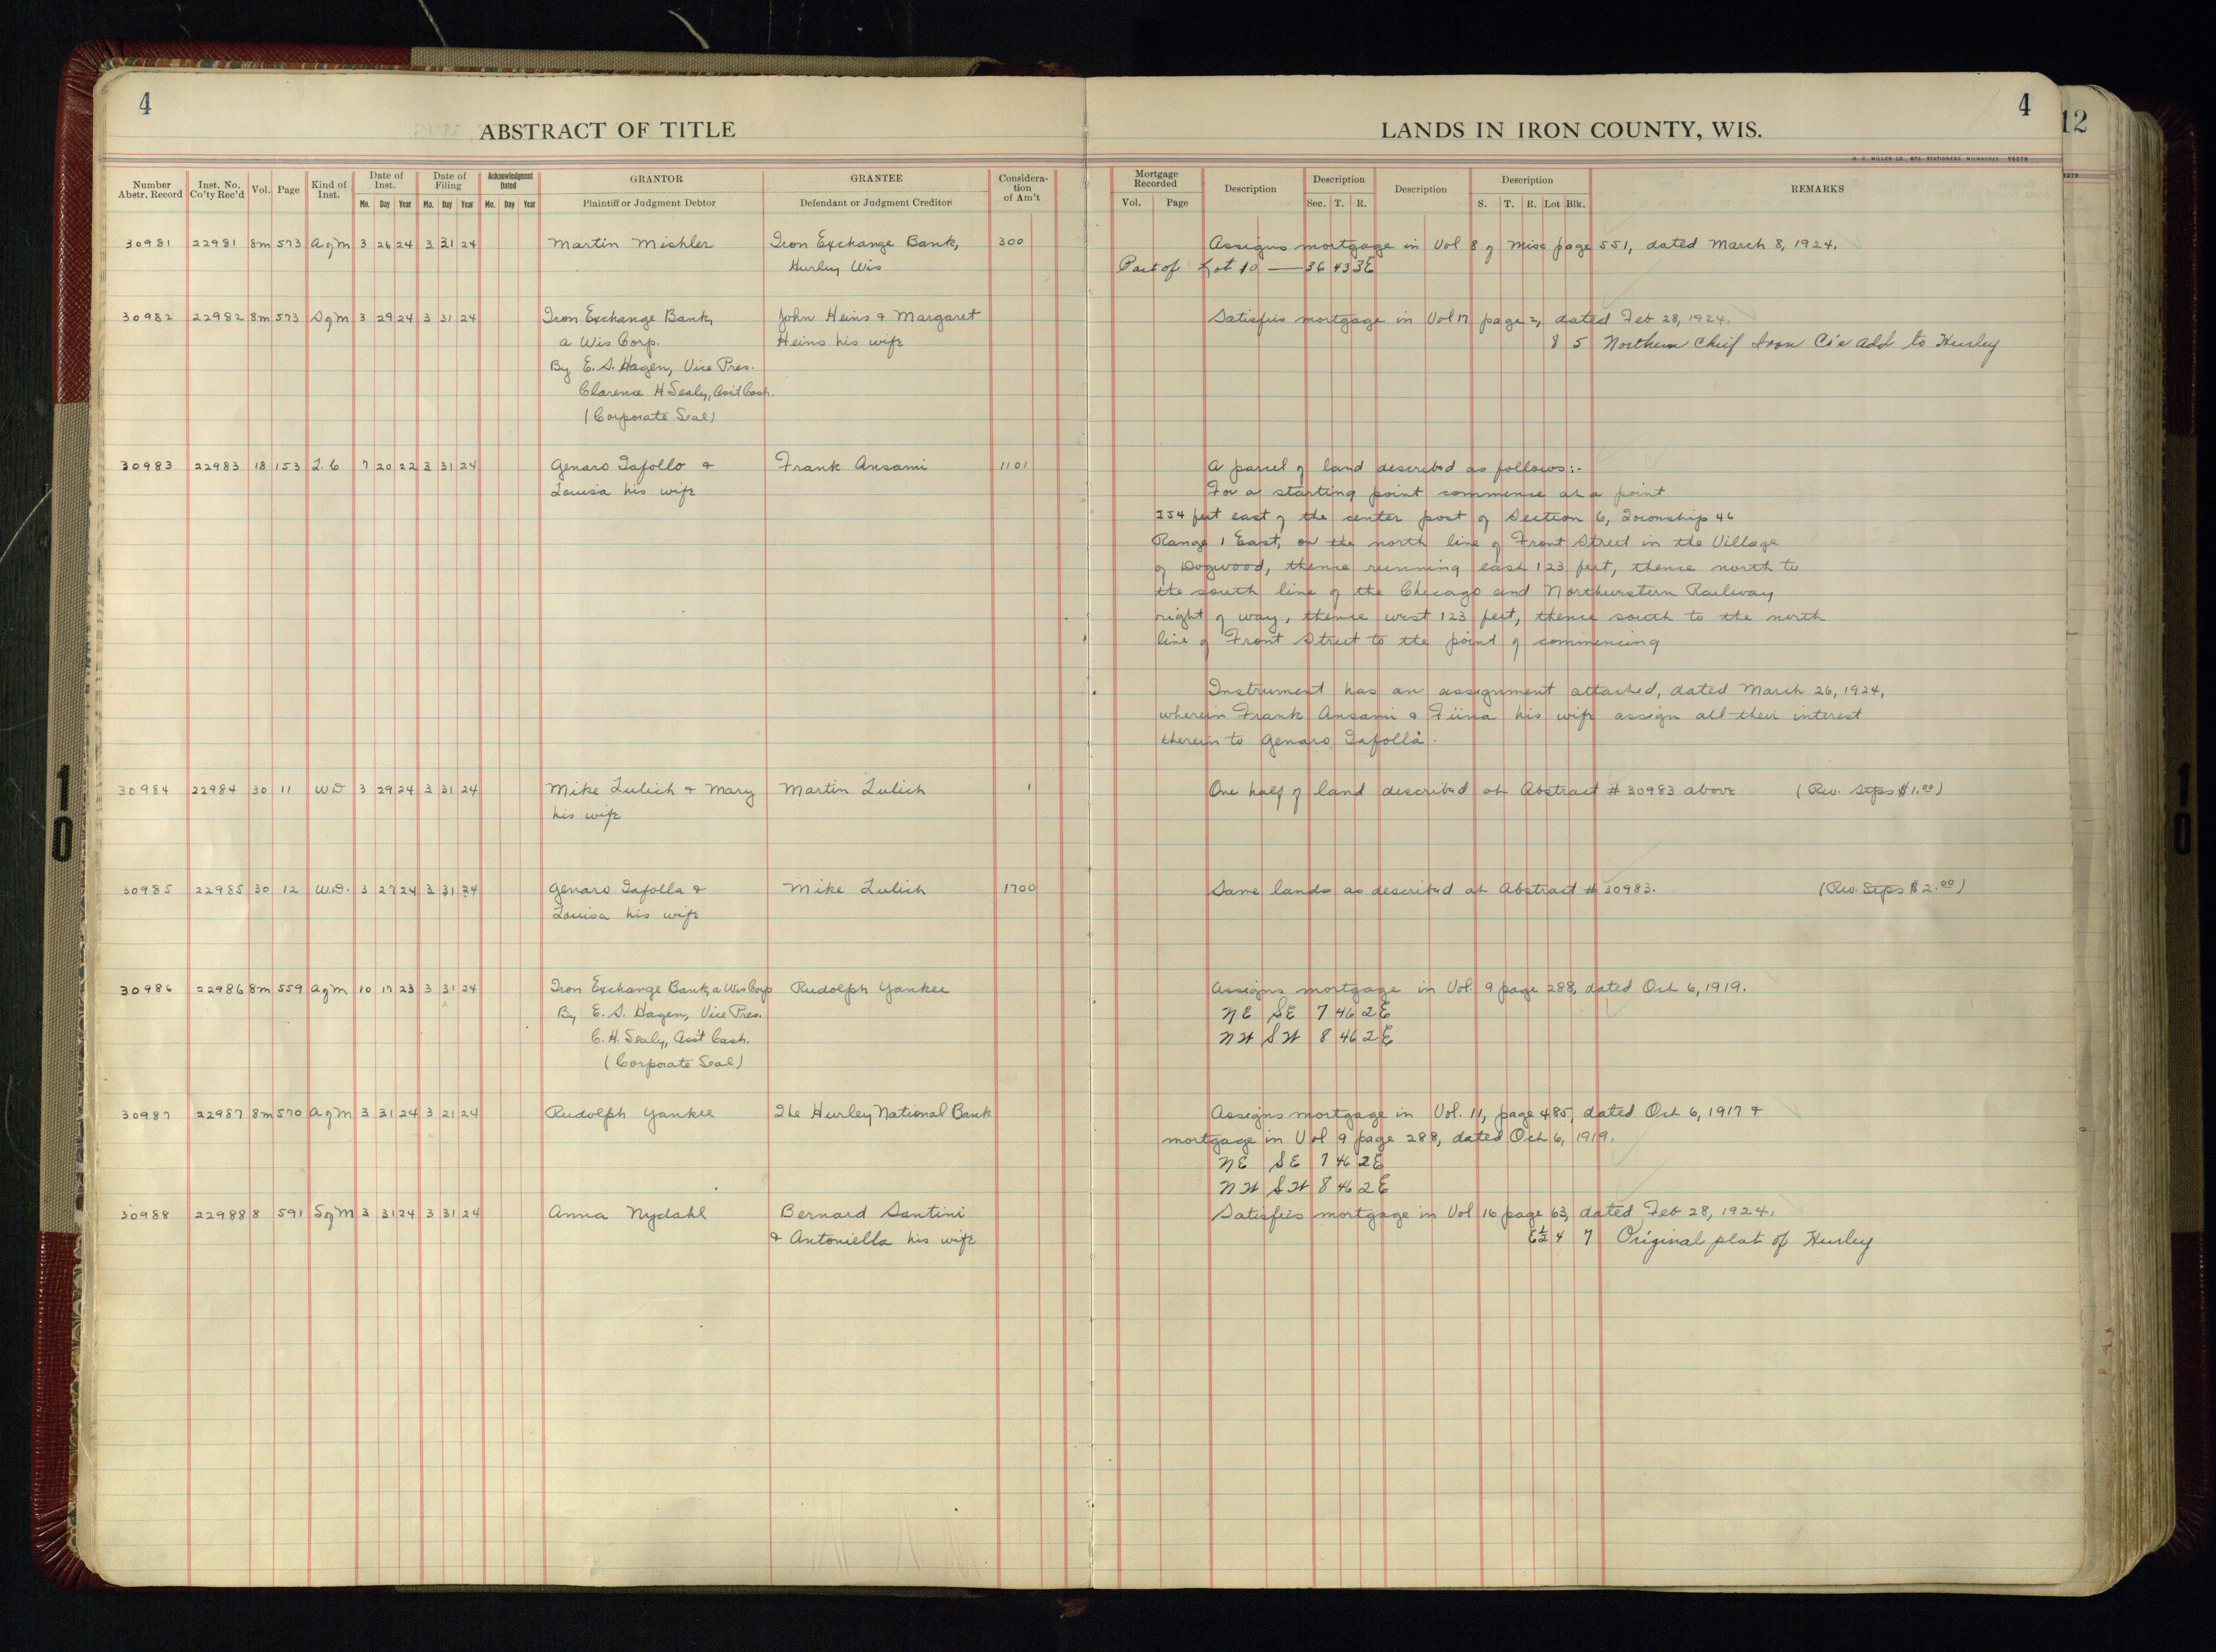 4
ABSTRACT OF TITLE
Number Abstr. Record | Inst. No. Co'ty Rec'd | Vol. | Page | Kind of Inst. | Date of Inst. Mo. Day Year | Date of Filing Mo. Day Year | Acknowledgment Dated Mo. Day Year | GRANTOR Plaintiff or Judgment Debtor | GRANTEE Defendant or Judgment Creditor | Consideration of Am't
4
LANDS IN IRON COUNTY, WIS.
12
H. C. MILLER CO., MFG. STATIONERS, MILWAUKEE Y6279
Mortgage Recorded Vol. Page | Description | Description Sec. T. R. | Description | Description S. T. R. Lot Blk. | REMARKS
30981 22981 8m 573 AgM 3 26 24 3 31 24 Martin Mishler Iron Exchange Bank, 300 Assigns mortgage in Vol 8 of Misc page 551, dated March 8, 1924.
Hurley Wis Part of Lot 10 — 36 43 3E
30982 22982 8m 573 SgM 3 29 24 3 31 24 Iron Exchange Bank, John Heins & Margaret Satisfies mortgage in Vol 17 page 2, dated Feb 28, 1924.
a Wis Corp. Heins his wife 8 5 Northern Chief Iron Co's Add to Hurley
By E. S. Hagen, Vice Pres.
Clarence H Sealy, Ass't Cash.
(Corporate Seal)
30983 22983 18 153 L.C 7 20 22 3 31 24 Genaro Tafollo & Frank Ansami 1101 A parcel of land described as follows:-
Louisa his wife For a starting point commence at a point
254 feet east of the center post of Section 6, Township 46
Range 1 East, on the north line of Front Street in the Village
of Dogwood, thence running east 123 feet, thence north to
the south line of the Chicago and Northwestern Railway
right of way, thence west 123 feet, thence south to the north
line of Front Street to the point of commencing
Instrument has an assignment attached, dated March 26, 1924,
wherein Frank Ansami & Fiina his wife assign all their interest
therein to Genaro Tafolla.
30984 22984 30 11 WD 3 29 24 3 31 24 Mike Lulich & Mary Martin Lulich 1 One half of land described at Abstract # 30983 above (Rev. Stps $1.00)
his wife
30985 22985 30 12 W.D. 3 27 24 3 31 24 Genaro Tafolla & Mike Lulich 1700 Same lands as described at Abstract # 30983. (Rev. Stps $2.00)
Louisa his wife
30986 22986 8m 559 AgM 10 17 23 3 31 24 Iron Exchange Bank, a Wis Corp Rudolph Yankee Assigns mortgage in Vol. 9 page 288, dated Oct 6, 1919.
By E. S. Hagen, Vice Pres. NE SE 7 46 2E
C. H. Sealy, Ass't Cash. NW SW 8 46 2E
(Corporate Seal)
30987 22987 8m 570 AgM 3 31 24 3 21 24 Rudolph Yankee The Hurley National Bank Assigns mortgage in Vol. 11, page 485, dated Oct 6, 1917 &
mortgage in Vol 9 page 288, dated Oct 6, 1919.
NE SE 7 46 2E
NW SW 8 46 2E
30988 22988 8 591 SgM 3 31 24 3 31 24 Anna Nydahl Bernard Santini Satisfies mortgage in Vol 16 page 63, dated Feb 28, 1924.
& Antoniella his wife E½ 4 7 Original plat of Hurley
10
10